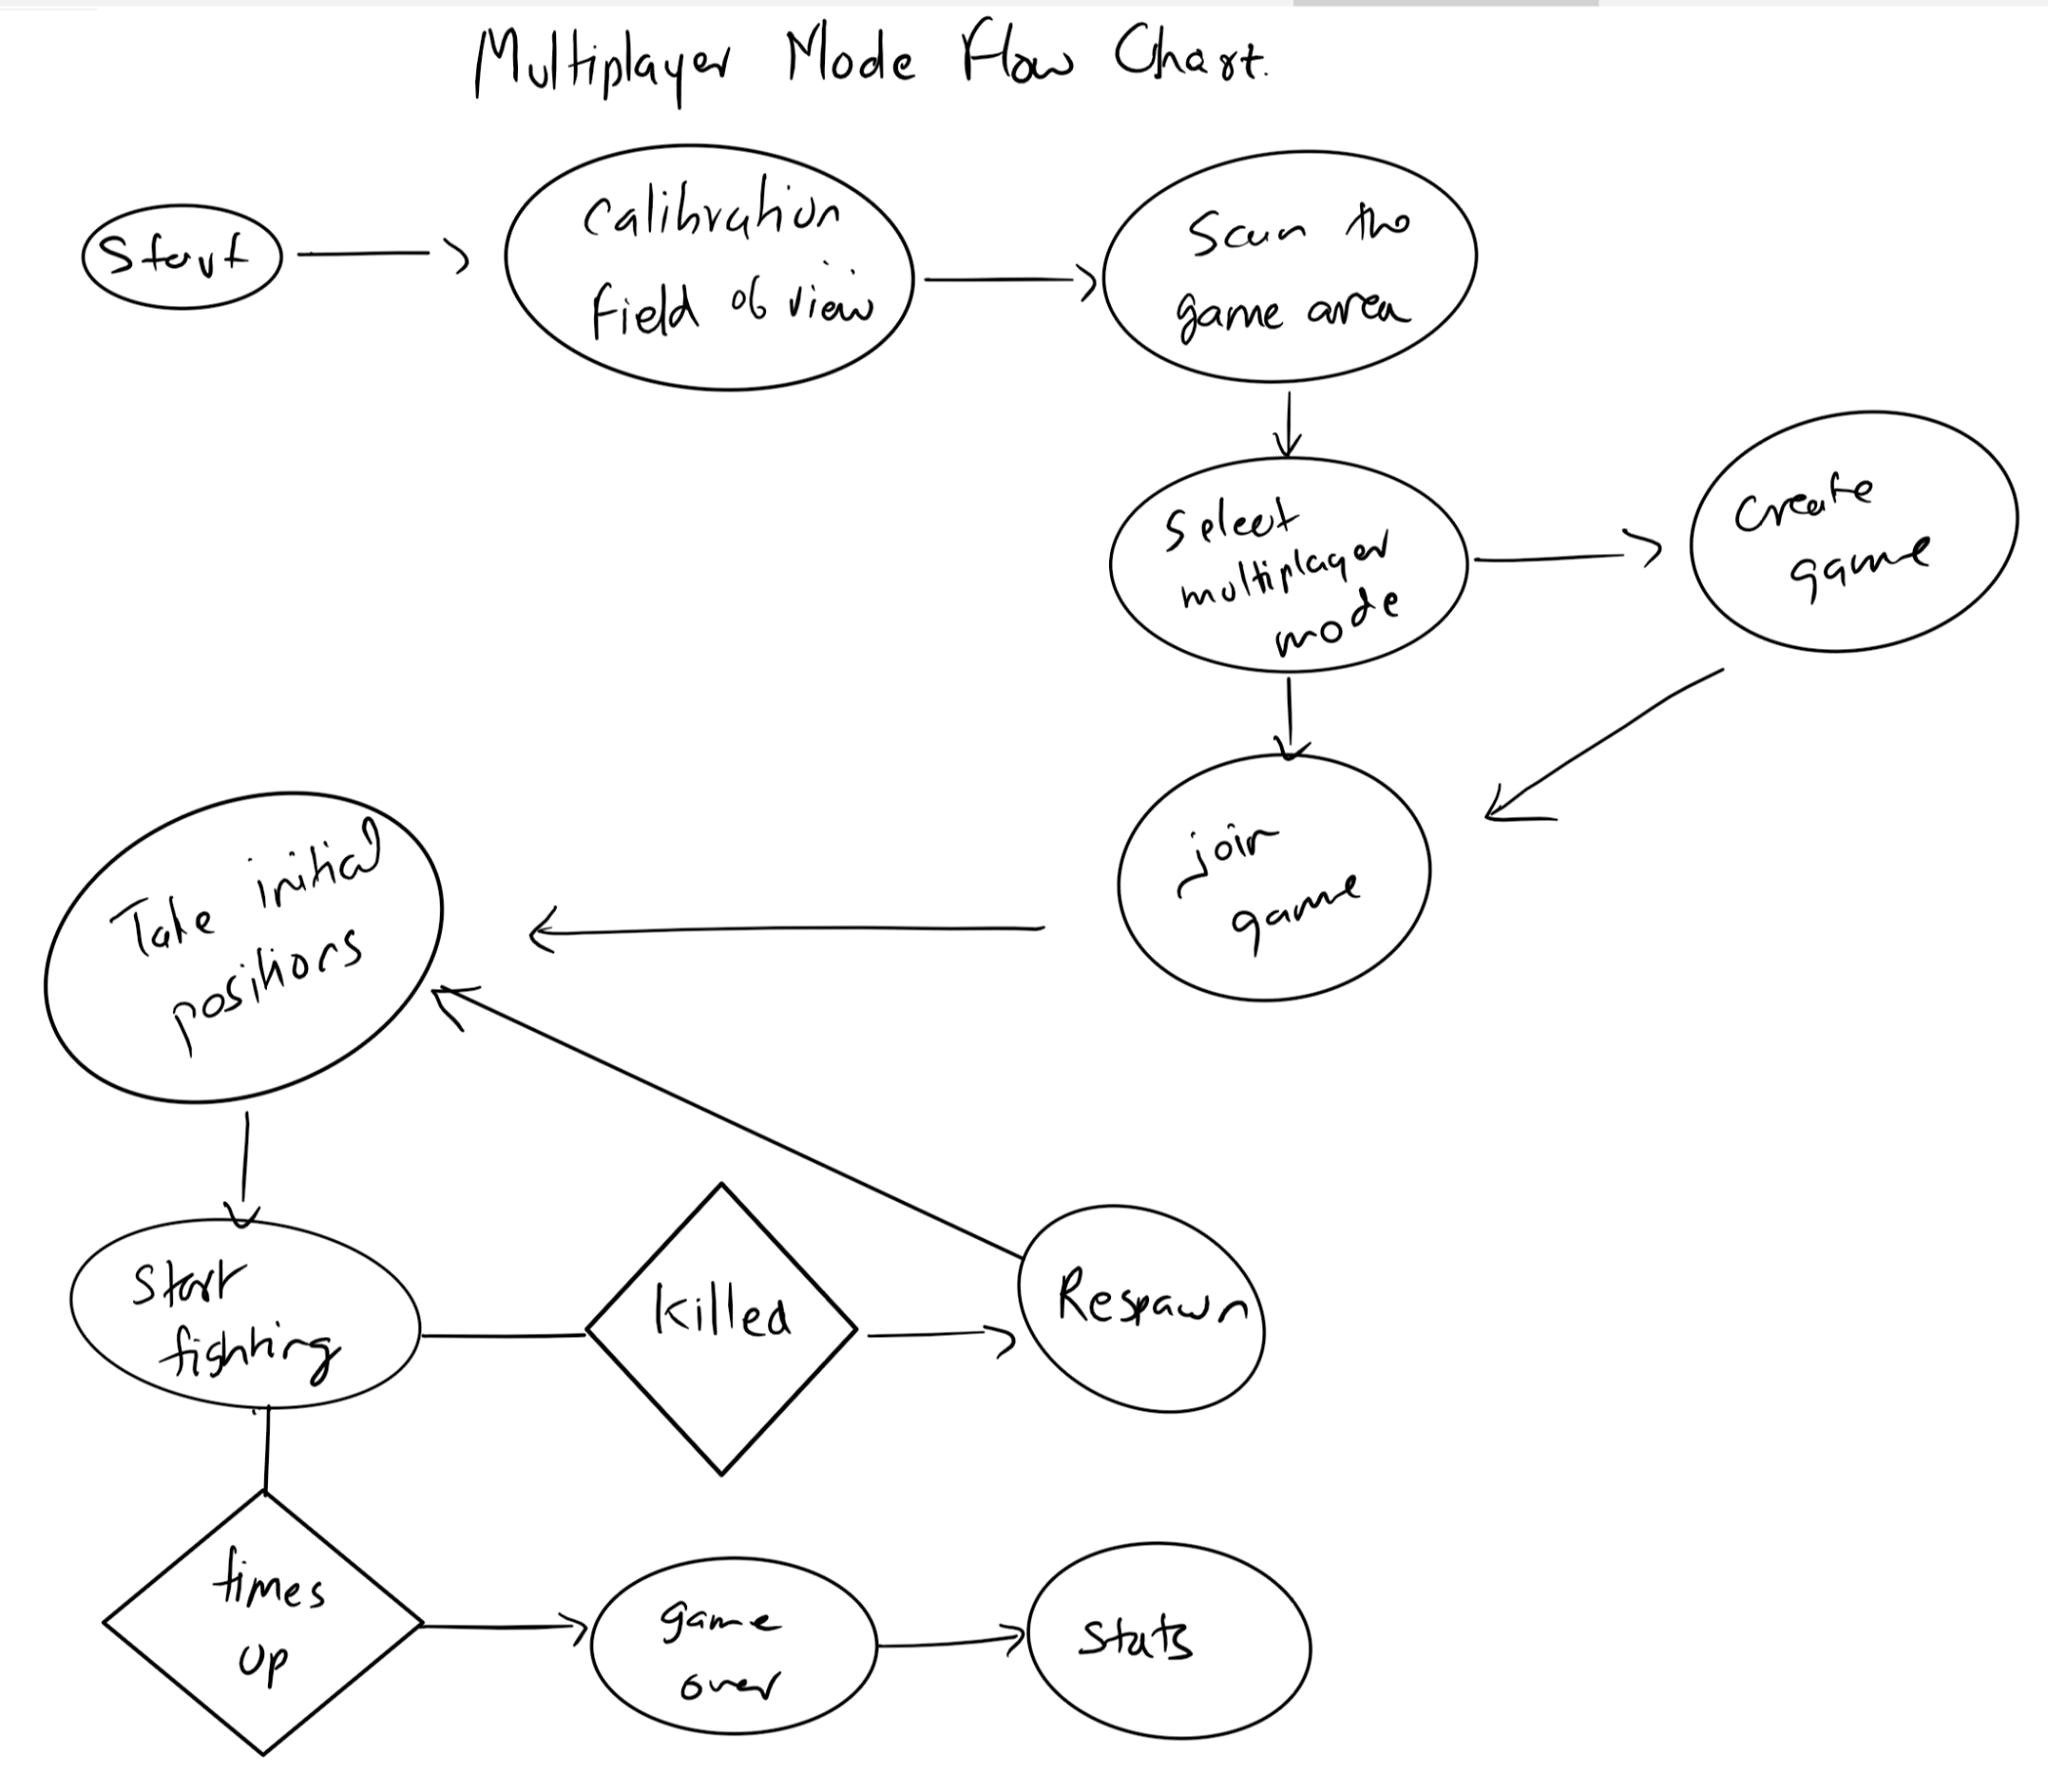 Multiplayer Mode Flow Chart.
Start
Calibration
field of view
Scan the
game area
Select
multiplayer
mode
Create
game
join
game
Take initial
positions
Start
fighting
killed
Respawn
times
up
game
over
stats